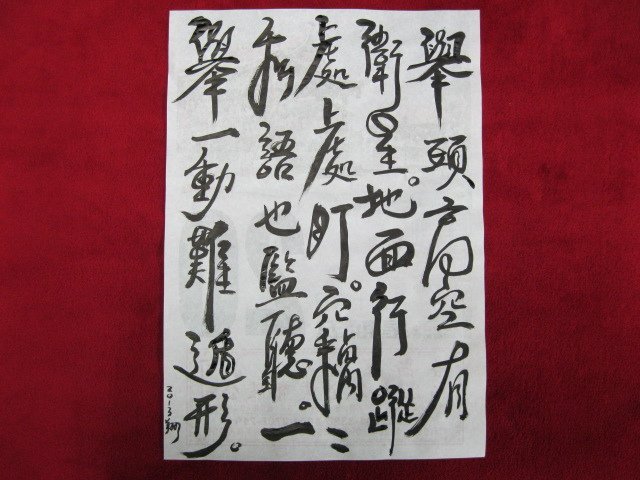 舉頭高空有
衛星。地面行蹤
處處盯。竊〻
私語也監聽。一
舉一動難遁形。
2013翔